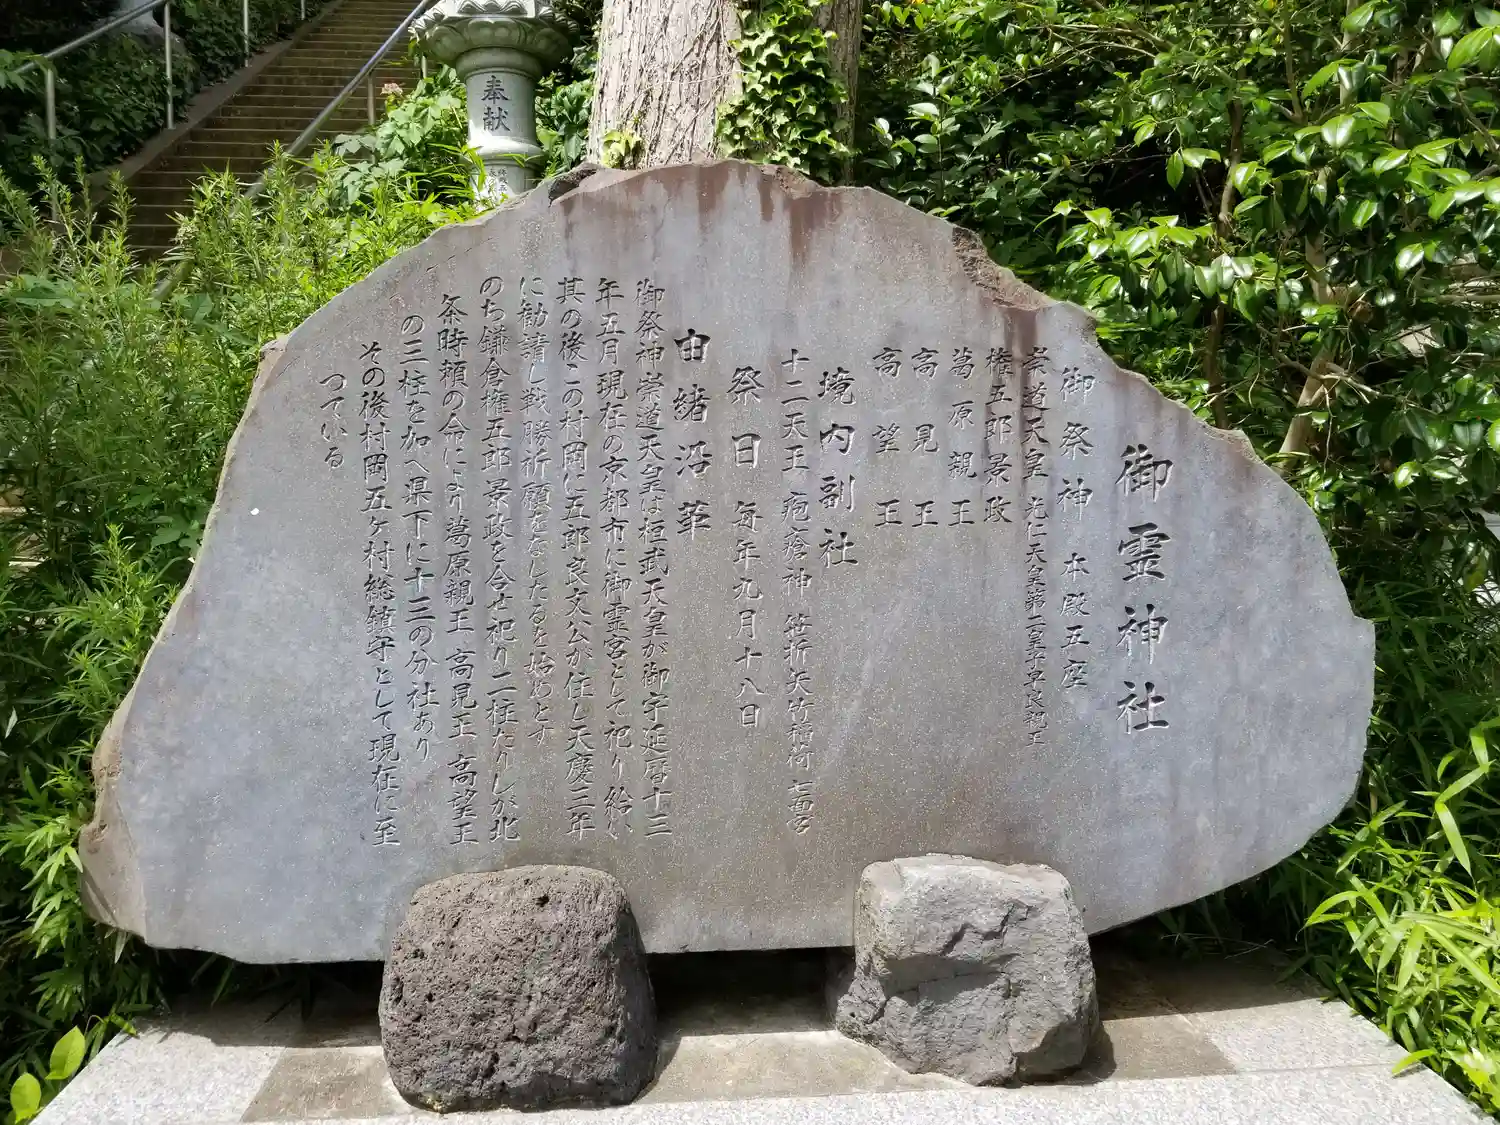 御霊神社
御祭神 本殿五座
崇道天皇 光仁天皇第二皇子早良親王
権五郎景政
葛原親王
高見王
高望王
境内副社
十二天王 疱瘡神 笹折矢竹稲荷 七面宮
祭日 毎年九月十八日
由緒沿革
御祭神崇道天皇は桓武天皇が御宇延暦十三
年五月現在の京都市に御霊宮として祀り給い
其の後この村岡に五郎良文公が住し天慶三年
に勧請し戦勝祈願をなしたるを始めとす
のち鎌倉権五郎景政を合せ祀り二柱たりしが北
条時頼の命により葛原親王 高見王 高望王
の三柱を加へ県下に十三の分社あり
その後村岡五ヶ村総鎮守として現在に至
つている
奉献